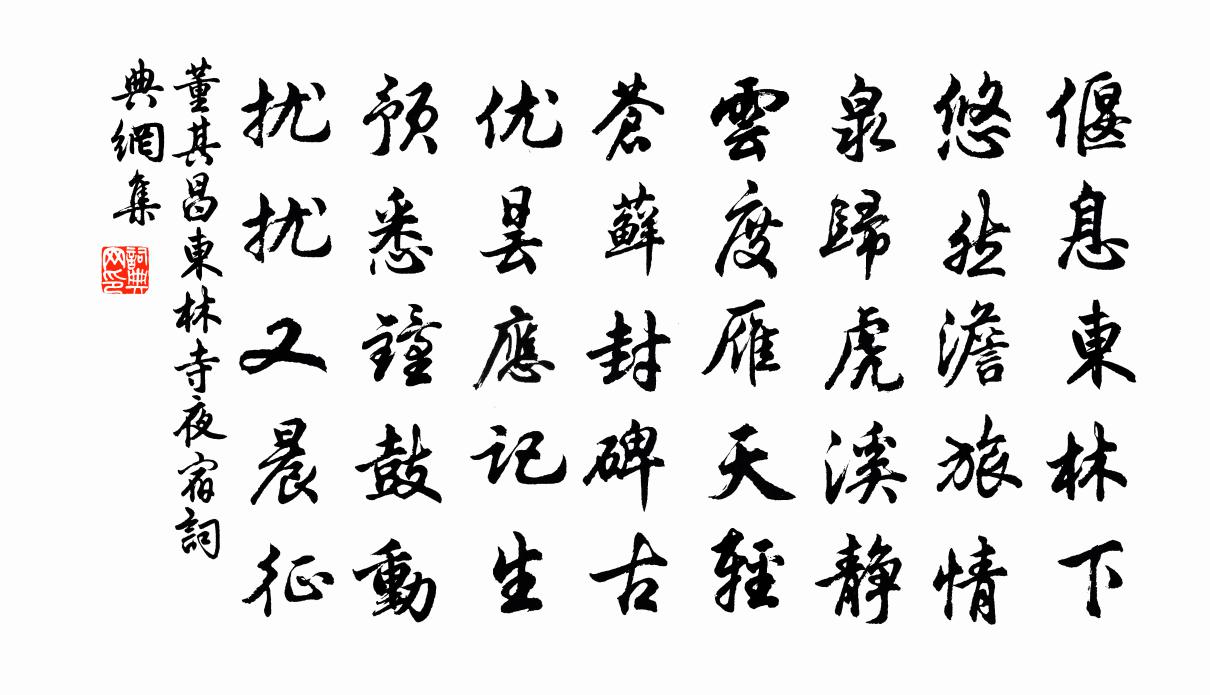 偃息東林下
悠然澹旅情
泉歸虎溪静
雲度雁天輕
蒼蘚封碑古
优曇應記生
预悉鐘鼓動
扰扰又晨征
董其昌東林寺夜宿詞
典網集
詞典
网印